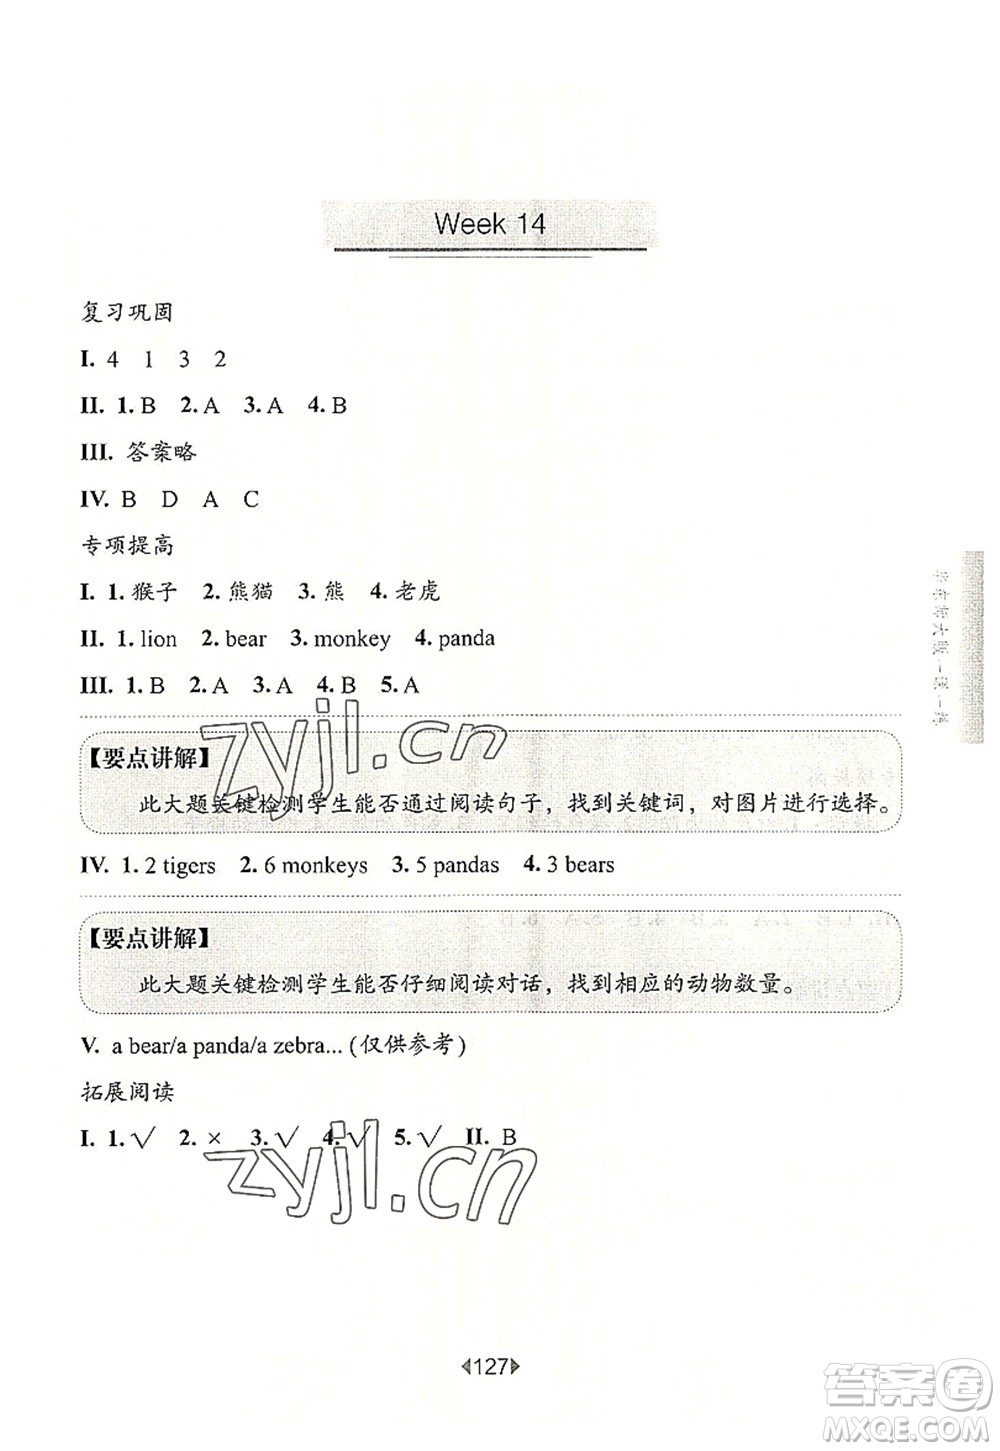 Week 14
复习巩固
I. 4 1 3 2
II. 1. B 2. A 3. A 4. B
III. 答案略
IV. B D A C
专项提高
I. 1. 猴子 2. 熊猫 3. 熊 4. 老虎
II. 1. lion 2. bear 3. monkey 4. panda
III. 1. B 2. A 3. A 4. B 5. A
【要点讲解】
此大题关键检测学生能否通过阅读句子，找到关键词，对图片进行选择。
IV. 1. 2 tigers 2. 6 monkeys 3. 5 pandas 4. 3 bears
【要点讲解】
此大题关键检测学生能否仔细阅读对话，找到相应的动物数量。
V. a bear/a panda/a zebra... (仅供参考)
拓展阅读
I. 1. √ 2. × 3. √ 4. √ 5. √ II. B
127
华东师大版一课一练
zyjl.cn
zyjl.cn
答案圈
MXQE.COM